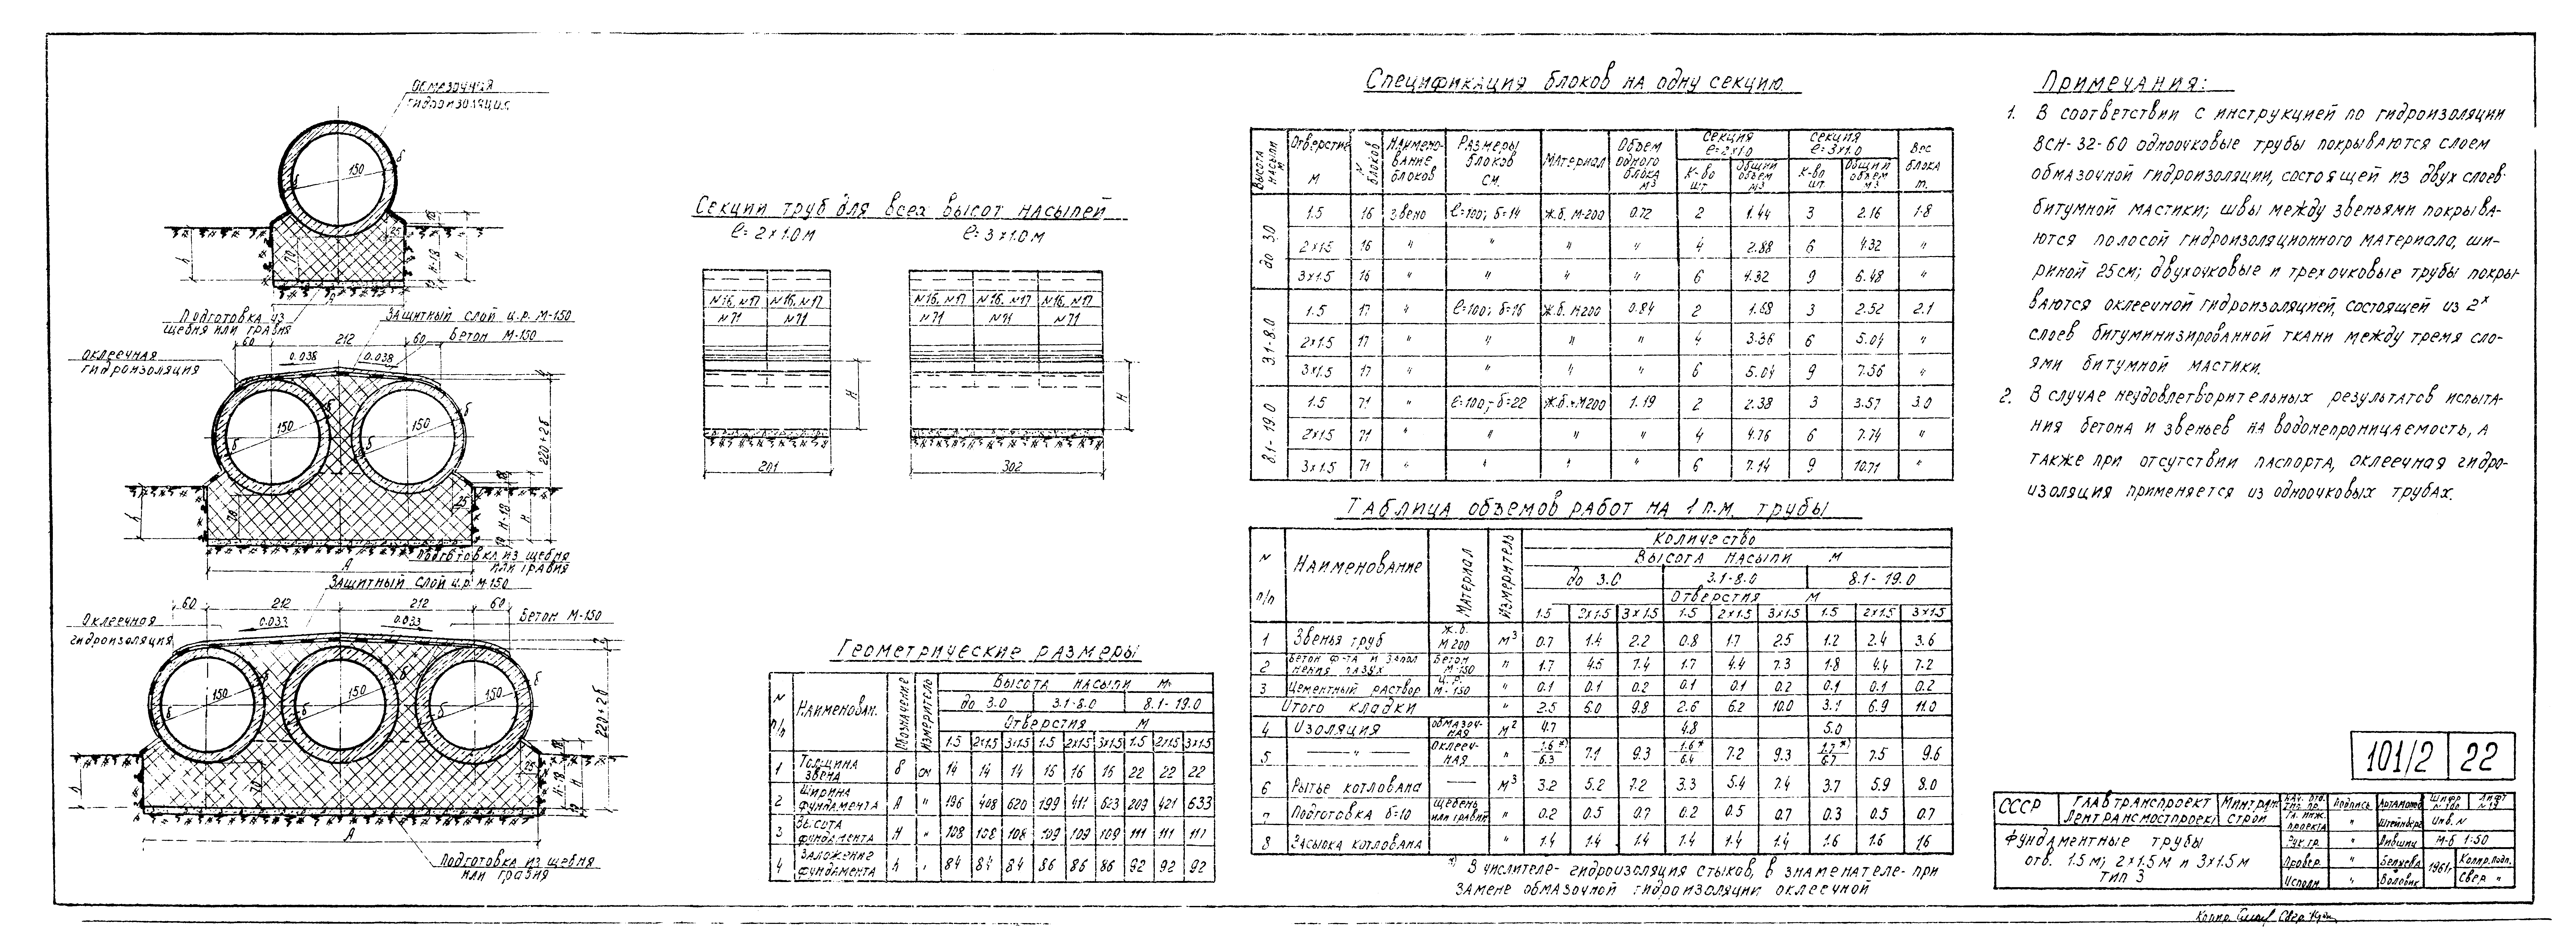 Обмазочная
гидроизоляция
150
Подготовка из
щебня или гравия
Защитный слой ц.р. М-150
Бетон М-150
60 212 60
0.038 0.038
Оклеечная
гидроизоляция
150 150
220+2δ
Подготовка из щебня
или гравия
А
Защитный слой ц.р. М-150
60 212 212 60
Оклеечная
гидроизоляция
0.033 0.033
Бетон М-150
150 150 150
220+2δ
А
Подготовка из щебня
или гравия
Секции труб для всех высот насыпей
ℓ= 2×1.0 м ℓ= 3×1.0 м
№16, №17 №16, №17 №16, №17 №16, №17 №16, №17
№71 №71 №71 №71 №71
Н Н
201 302
Геометрические размеры
N п/п Наименован. Обозначение Измеритель Высота насыпи м.
до 3.0 3.1-8.0 8.1-19.0
Отверстия М
1.5 2×1.5 3×1.5 1.5 2×1.5 3×1.5 1.5 2×1.5 3×1.5
1 Толщина звена δ см 14 14 14 16 16 16 22 22 22
2 Ширина фундамента А " 196 408 620 199 411 623 209 421 633
3 Высота фундамента Н " 108 108 108 109 109 109 111 111 111
4 Заложение фундамента h " 84 84 84 86 86 86 92 92 92
Спецификация блоков на одну секцию.
Высота насыпи м Отверстие М N блоков Наименование блоков Размеры блоков см. Материал Объем одного блока м³ Секция ℓ=2×1.0 Секция ℓ=3×1.0 Вес блока т.
К-во шт Общий объем м³ К-во шт. Общий объем м³
до 3.0 1.5 16 Звено ℓ=100; δ=14 Ж.б. М-200 0.72 2 1.44 3 2.16 1.8
2×1.5 16 " " " " 4 2.88 6 4.32 "
3×1.5 16 " " " " 6 4.32 9 6.48 "
3.1-8.0 1.5 17 " ℓ=100; δ=16 Ж.б. М200 0.84 2 1.68 3 2.52 2.1
2×1.5 17 " " " " 4 3.36 6 5.04 "
3×1.5 17 " " " " 6 5.04 9 7.56 "
8.1-19.0 1.5 71 " ℓ=100; δ=22 Ж.б. М200 1.19 2 2.38 3 3.57 3.0
2×1.5 71 " " " " 4 4.76 6 7.14 "
3×1.5 71 " " " " 6 7.14 9 10.71 "
Таблица объемов работ на 1 п.м. трубы
N п/п Наименование Материал Измеритель Количество
Высота насыпи м
до 3.0 3.1-8.0 8.1-19.0
Отверстия М
1.5 2×1.5 3×1.5 1.5 2×1.5 3×1.5 1.5 2×1.5 3×1.5
1 Звенья труб Ж.б. М200 м³ 0.7 1.4 2.2 0.8 1.7 2.5 1.2 2.4 3.6
2 Бетон ф-та и заполнения пазух Бетон М-150 " 1.7 4.5 7.4 1.7 4.4 7.3 1.8 4.4 7.2
3 Цементный раствор ц.р. М-150 " 0.1 0.1 0.2 0.1 0.1 0.2 0.1 0.1 0.2
Итого кладки " 2.5 6.0 9.8 2.6 6.2 10.0 3.1 6.9 11.0
4 Изоляция обмазочная м² 4.7 4.8 5.0
5 " Оклеечная " 1.6*)/6.3 7.1 9.3 1.6*/6.4 7.2 9.3 1.7*)/6.7 7.5 9.6
6 Рытье котлована — м³ 3.2 5.2 7.2 3.3 5.4 7.4 3.7 5.9 8.0
7 Подготовка δ=10 щебень или гравий " 0.2 0.5 0.7 0.2 0.5 0.7 0.3 0.5 0.7
8 Засыпка котлована " 1.4 1.4 1.4 1.4 1.4 1.4 1.6 1.6 1.6
*) В числителе- гидроизоляция стыков, в знаменателе- при
замене обмазочной гидроизоляции оклеечной
Примечания:
1. В соответствии с инструкцией по гидроизоляции
ВСН-32-60 одноочковые трубы покрываются слоем
обмазочной гидроизоляции, состоящей из двух слоев
битумной мастики; швы между звеньями покрыва-
ются полосой гидроизоляционного материала, ши-
риной 25см; двухочковые и трехочковые трубы покры-
ваются оклеечной гидроизоляцией, состоящей из 2х
слоев битуминизированной ткани между тремя сло-
ями битумной мастики.
2. В случае неудовлетворительных результатов испыта-
ния бетона и звеньев на водонепроницаемость, а
также при отсутствии паспорта, оклеечная гидро-
изоляция применяется из одноочковых трубах.
101/2 22
СССР Главтранспроект Минтранс
Лентрансмостпроект строй
Фундаментные трубы
отв. 1.5 м; 2×1.5 м и 3×1.5 м
Тип 3
Подпись Артамонов
Гл. инж. проекта " Штейнберг Инв. N
Рук. гр. " М-б 1:50
Провер. " Беляева 1961г. Копир. подп.
Исполн. " Воловик Свер. "